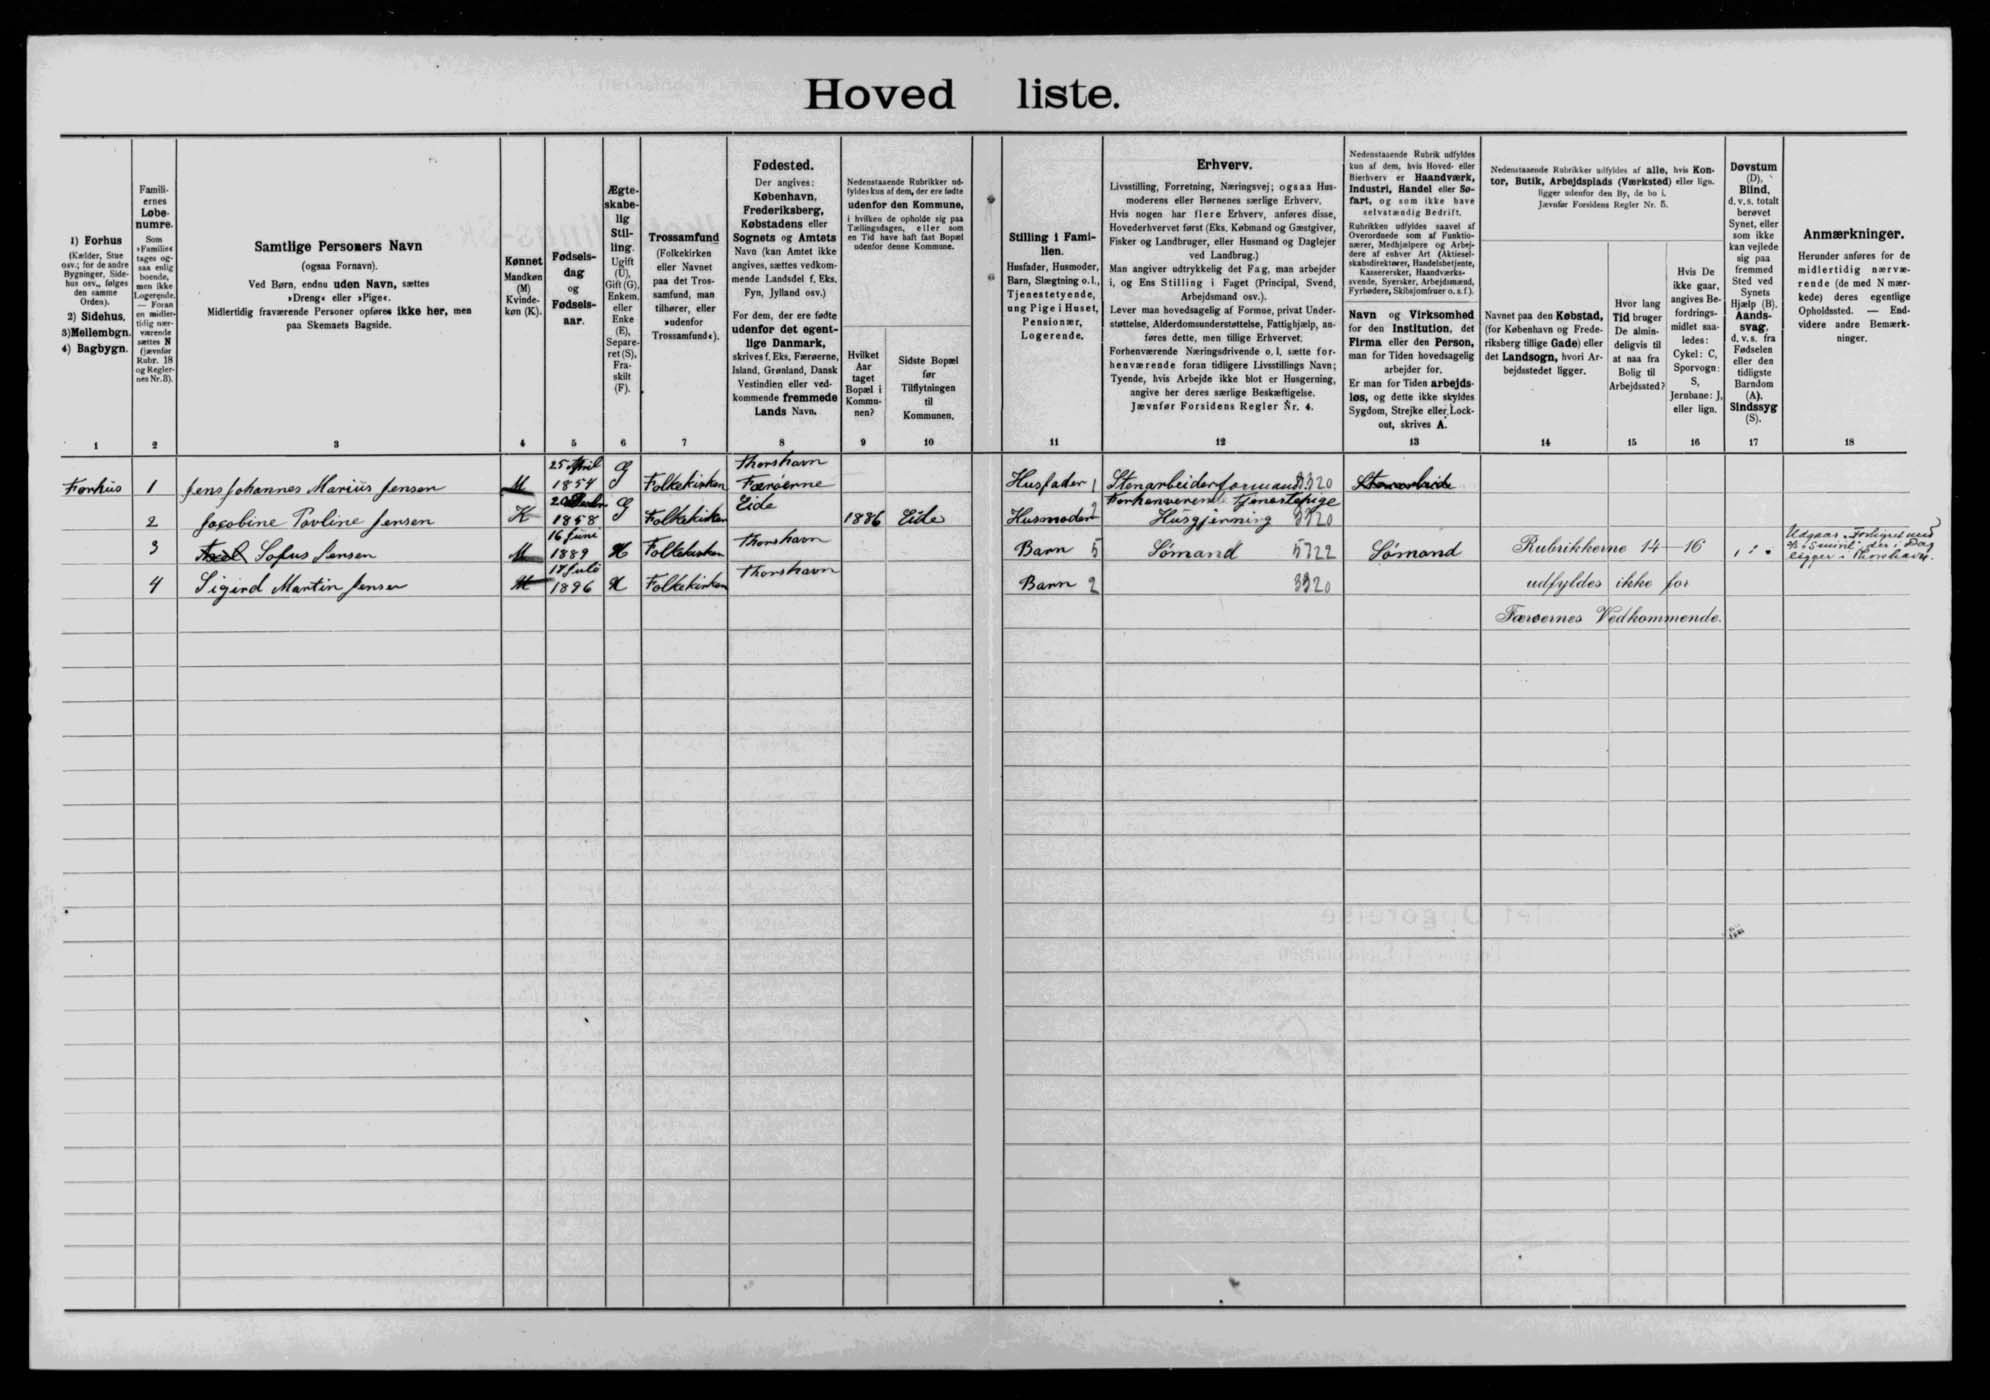 Hoved liste.
1) Forhus
(Kælder, Stue
osv.; for de andre
Bygninger, Side-
hus osv., følges
den samme
Orden).
2) Sidehus,
3) Mellembgn.
4) Bagbygn.
Famili-
ernes
Løbe-
numre.
Som
»Familie«
tages og-
saa enlig
boende,
men ikke
Logerende.
— Foran
en midler-
tidig nær-
værende
sættes N
(jævnfør
Rubr. 18
og Regler-
nes Nr. 8).
Samtlige Personers Navn
(ogsaa Fornavn).
Ved Børn, endnu uden Navn, sættes
»Dreng« eller »Pige«.
Midlertidig fraværende Personer opføres ikke her, men
paa Skemaets Bagside.
Kønnet
Mandkøn
(M)
Kvinde-
køn (K).
Fødsels-
dag
og
Fødsels-
aar.
Ægte-
skabe-
lig
Stil-
ling.
Ugift
(U),
Gift (G),
Enkem.
eller
Enke
(E),
Separe-
ret (S),
Fra-
skilt
(F).
Trossamfund
(Folkekirken
eller Navnet
paa det Tros-
samfund, man
tilhører, eller
»udenfor
Trossamfund«).
Fødested.
Der angives:
København,
Frederiksberg,
Købstadens eller
Sognets og Amtets
Navn (kan Amtet ikke
angives, sættes vedkom-
mende Landsdel f. Eks.
Fyn, Jylland osv.)
For dem, der ere fødte
udenfor det egent-
lige Danmark,
skrives f. Eks. Færøerne,
Island, Grønland, Dansk
Vestindien eller ved-
kommende fremmede
Lands Navn.
Nedenstaaende Rubrikker ud-
fyldes kun af dem, der ere fødte
udenfor den Kommune,
i hvilken de opholde sig paa
Tællingsdagen, eller som
en Tid have haft fast Bopæl
udenfor denne Kommune.
Hvilket
Aar
taget
Bopæl i
Kommu-
nen?
Sidste Bopæl
før
Tilflytningen
til
Kommunen.
Stilling i Fami-
lien.
Husfader, Husmoder,
Barn, Slægtning o. l.,
Tjenestetyende,
ung Pige i Huset,
Pensionær,
Logerende.
Erhverv.
Livsstilling, Forretning, Næringsvej; ogsaa Hus-
moderens eller Børnenes særlige Erhverv.
Hvis nogen har flere Erhverv, anføres disse,
Hovederhvervet først (Eks. Købmand og Gæstgiver,
Fisker og Landbruger, eller Husmand og Daglejer
ved Landbrug.)
Man angiver udtrykkelig det Fag, man arbejder
i, og Ens Stilling i Faget (Principal, Svend,
Arbejdsmand osv.).
Lever man hovedsagelig af Formue, privat Under-
støttelse, Alderdomsunderstøttelse, Fattighjælp, an-
føres dette, men tillige Erhvervet.
Forhenværende Næringsdrivende o. l. sætte for-
henværende foran tidligere Livsstillings Navn;
Tyende, hvis Arbejde ikke blot er Husgerning,
angive her deres særlige Beskæftigelse.
Jævnfør Forsidens Regler Nr. 4.
Nedenstaaende Rubrik udfyldes
kun af dem, hvis Hoved- eller
Bierhverv er Haandværk,
Industri, Handel eller Sø-
fart, og som ikke have
selvstændig Bedrift.
Rubrikken udfyldes saavel af
Overordnede som af Funktio-
nærer, Medhjælpere og Arbej-
dere af enhver Art (Aktiesel-
skabsdirektører, Handelsbetjente,
Kasserersker, Haandværks-
svende, Syersker, Arbejdsmænd,
Fyrbødere, Skibsjomfruer o. s. f.).
Navn og Virksomhed
for den Institution, det
Firma eller den Person,
man for Tiden hovedsagelig
arbejder for.
Er man for Tiden arbejds-
løs, og dette ikke skyldes
Sygdom, Strejke eller Lock-
out, skrives A.
Nedenstaaende Rubrikker udfyldes af alle, hvis Kon-
tor, Butik, Arbejdsplads (Værksted) eller lign.
ligger udenfor den By, de bo i.
Jævnfør Forsidens Regler Nr. 5.
Navnet paa den Købstad,
(for København og Frede-
riksberg tillige Gade) eller
det Landsogn, hvori Ar-
bejdsstedet ligger.
Hvor lang
Tid bruger
De almin-
deligvis til
at naa fra
Bolig til
Arbejdssted?
Hvis De
ikke gaar,
angives Be-
fordrings-
midlet saa-
ledes:
Cykel: C,
Sporvogn:
S,
Jernbane: J,
eller lign.
Døvstum
(D),
Blind,
d. v. s. totalt
berøvet
Synet, eller
som ikke
kan vejlede
sig paa
fremmed
Sted ved
Synets
Hjælp (B),
Aands-
svag,
d. v. s. fra
Fødselen
eller den
tidligste
Barndom
(A),
Sindssyg
(S).
Anmærkninger.
Herunder anføres for de
midlertidig nærvæ-
rende (de med N mær-
kede) deres egentlige
Opholdssted. — End-
videre andre Bemærk-
ninger.
1 2 3 4 5 6 7 8 9 10 11 12 13 14 15 16 17 18
Forhus 1 Jens Johannes Marius Jensen M 25 April 1854 G Folkekirken Thorshavn Færøerne Husfader 1 Stenarbeiderformand 3320
2 Jacobine Povline Jensen K 1858 G Folkekirken Eide 1886 Eide Husmoder 2 Forhenverende Tjenestepige Husgjerning 3320
3 Sofus Jensen M 16 Juni 1889 Folkekirken Thorshavn Barn 5 Sømand 5722 Sømand Rubrikkerne 14—16
4 Sigird Martin Jensen M 17 Juli 1896 Folkekirken Thorshavn Barn 2 3320 udfyldes ikke for
Færøernes Vedkommende.